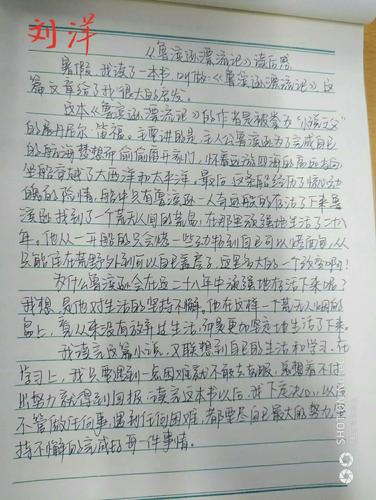 刘洋
《鲁滨逊漂流记》读后感
暑假,我读了一本书,叫做《鲁滨逊漂流记》,这
篇文章给了我很大的启发。
这本《鲁滨逊漂流记》的作者是被拳为“小说之父”
的丹尼尔·笛福。主要讲的是,主人公鲁滨逊为了完成自己
的航海梦想而偷偷离开家门,怀着远游四海的高远志向
坐船穿越了大西洋和太平洋。最后,这条船经历了惊心动
魄的险情,船中只有鲁滨逊一人奇迹般的存活了下来鲁
滨逊找到了一个荒无人间的荒岛,在那里顽强地生活了二十八
年。他从一开始的只会 一些 到自己可以 ,从
只能住在荒野外到可以自己盖房子,这是多大的一个改变啊!
为什么鲁滨逊会在这二十八年中顽强地存活下来呢?
我想,是他对生活的坚持不懈。他在这样一个荒无人烟的
岛上,看从来没有放弃过生活,而是更加坚定地生活了下来。
我读完这篇小说,又联想到自己的生活和学习。在
学习上,我只要遇到一点困难就不敢去克服,总想着不付
出努力就得到回报。读完这本书以后,我下定决心,以后
不管做任何事,遇到任何困难,都要尽自己最大的努力,坚
持不懈的完成好每一件事情。
SHOT ON